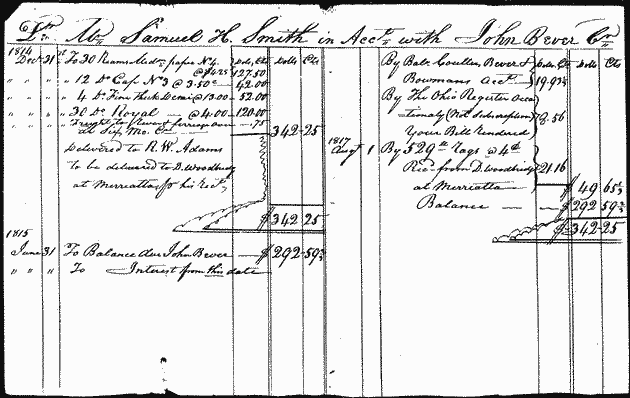 Dr. Mr. Samuel H. Smith in Acct. with John Bever Cr.
1814 Dolls, Cts Dolls Cts
Decr. 31st To 30 Reams Medm. paper No 4 @ $4.25 127.50
" " " " 12 Do Cap No 3 @ 3.50c — 42.00
" " " " 4 Do Fine thick Demi @ 13.00 — 52.00
" " " " 30 Do Royal — @ 4.00 — 120.00
" " " " Freight to — 75
at Six Mo. Cr. 342 25
Delivered to R. W. Adams
to be delivered to D. Woodbridge
at Merriatta for his rect.
$ 342 25
1815
June 31 To Balance due John Bever — $ 292 59¾
" " " To Interest from this date
Dolls. Cts Dolls Cts
By Balc. Coulter, Bever &
Bowmans Acct. — 19.93½
By The Ohio Register Acct.
Subscription
Your Bill Rendered 8.56
1817
Augt 1 By 529 lb Rags @ 4d
Recd. from D. Woodbridge 21.16
at Merriatta $ 49 65½
Balance — — $ 292 59¾
$ 342 25